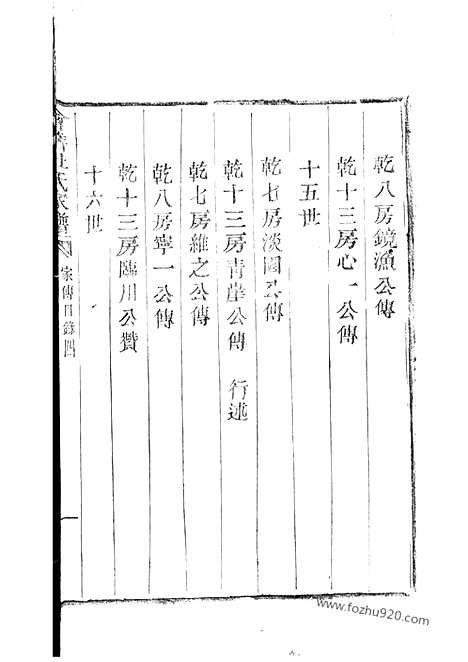 乾八房鏡漁公傳
乾十三房心一公傳
十五世
乾七房淡園公傳
乾十三房青崖公傳 行述
乾七房維之公傳
乾八房寧一公傳
乾十三房臨川公贊
十六世
杜氏家譜 家傳目錄四
www.fozhu920.com